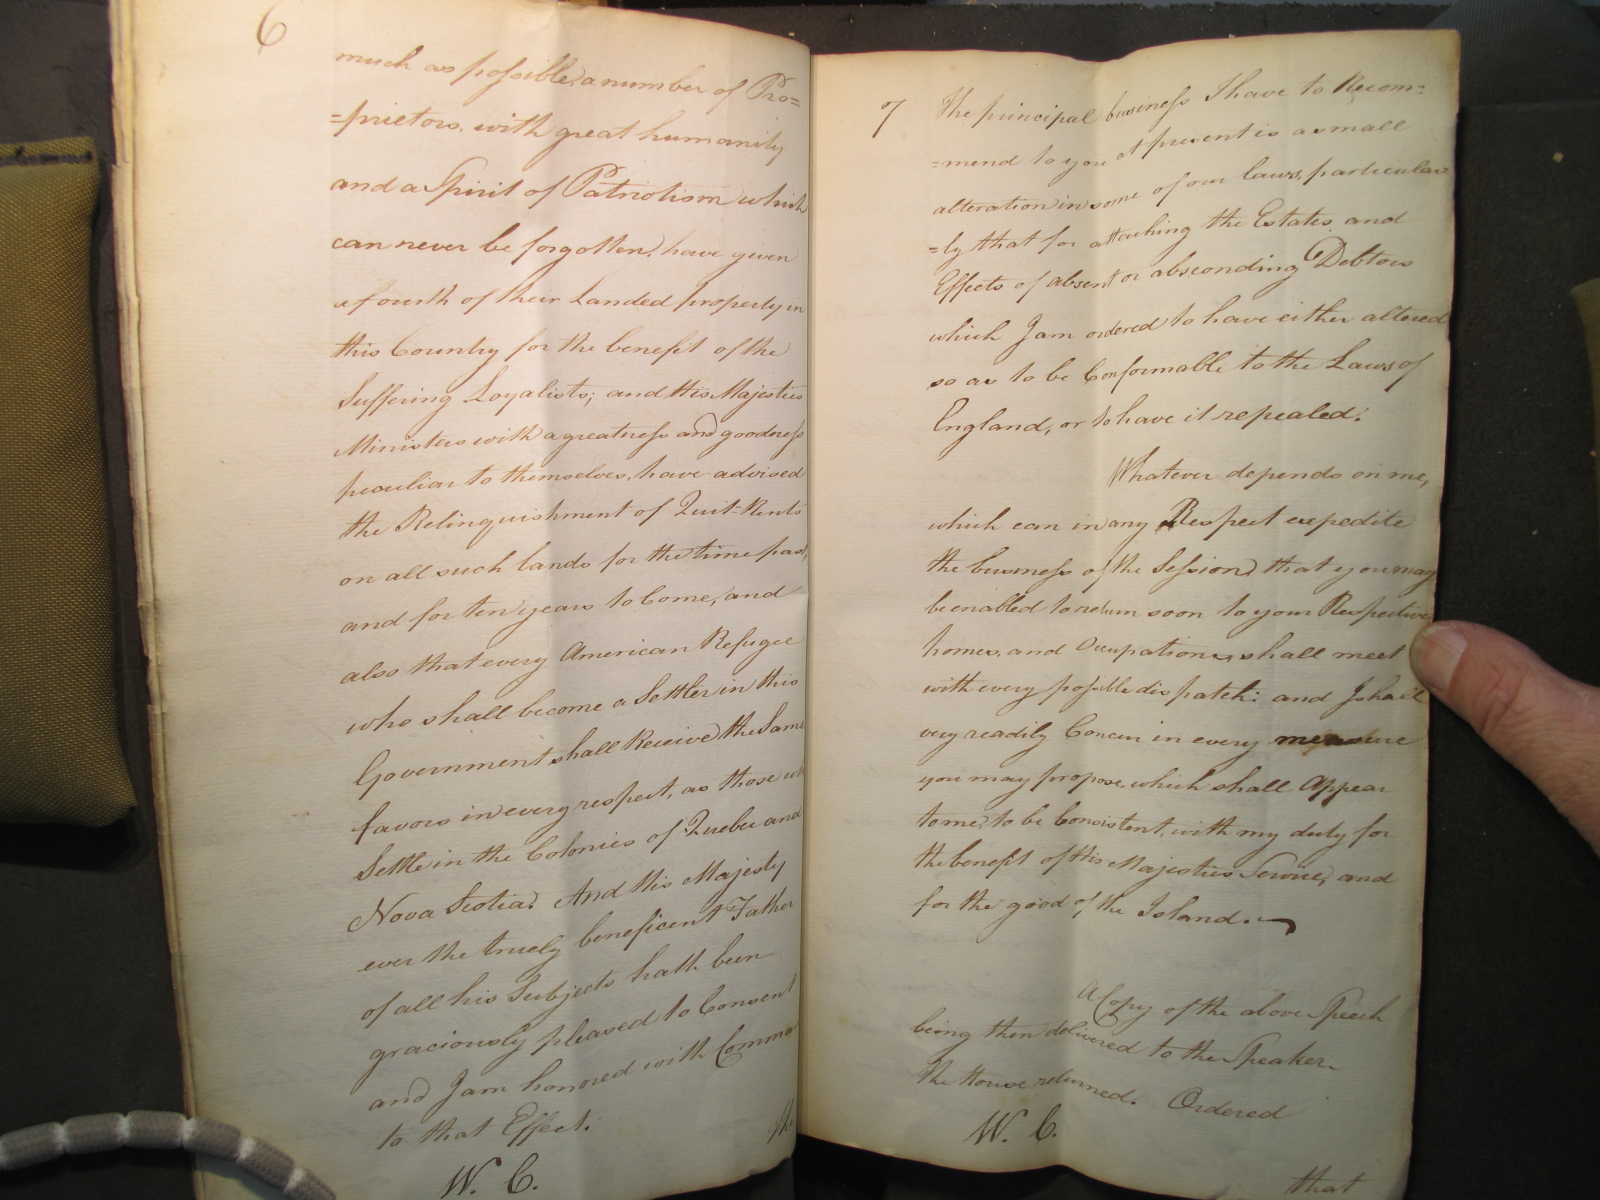 6
much as possible, a number of Pro=
=prietors, with great humanity
and a Spirit of Patriotism which
can never be forgotten, have given
a fourth of their Landed property in
this Country for the benefit of the
Suffering Loyalists; and His Majesties
Ministers with a greatness and goodness
peculiar to themselves, have advised
the Relinquishment of Quit-Rents
on all such lands for the time past,
and for ten years to Come, and
also that every American Refugee
who shall become a Settler in this
Government shall Receive the Same
favors in every respect, as those wh
Settle in the Colonies of Quebec and
Nova Scotia. And His Majesty
ever the truely beneficent Father
of all his Subjects hath been
graciously pleased to Consent
and I am honored with Comma
to that Effect.
W. C.
The
7
The principal business I have to Recom=
=mend to you at present is a small
alteration in some of our laws, particular
=ly that for attaching the Estates and
Effects of absent or absconding Debtors
which I am ordered to have either altered
so as to be Conformable to the Laws of
England, or to have it repealed.
Whatever depends on me,
which can in any Respect expedite
the business of the Session, that you may
be enabled to return soon to your Respective
homes, and Occupations, shall meet
with every possible dispatch: and I shall
very readily Concur in every measure
you may propose, which shall Appear
to me, to be Consistent, with my duty for
the benefit of His Majesties Service, and
for the good of the Island.
A Copy of the above Speech
being then delivered to the Speaker.
The House returned. Ordered
W. C.
that